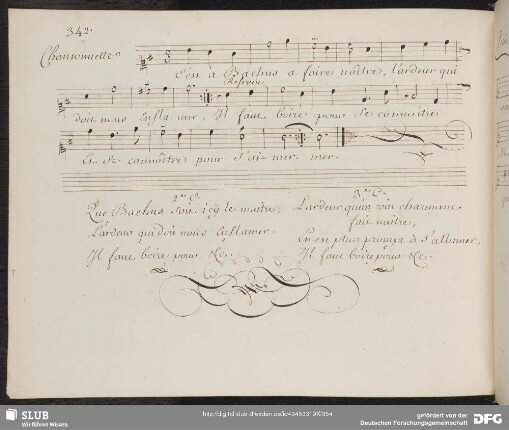 342.
Chansonnette
C'en à Bachus a faire naître, l'ardeur qui
Refrain.
doit nous enflamer, Il faut boire pour se connoître
Et se connoître pour s'aimer. mer.
2.me C.
Que Bachus soit icy le maitre,
L'ardeur qui doit nous enflamer.
Il faut boire pour &c.
3.me C.
L'ardeur qu'un vin charmant
fait naître,
En est plus prompte à s'allumer,
Il faut boire pour &c.
SLUB
Wir führen Wissen.
gefördert von der
Deutschen Forschungsgemeinschaft
DFG